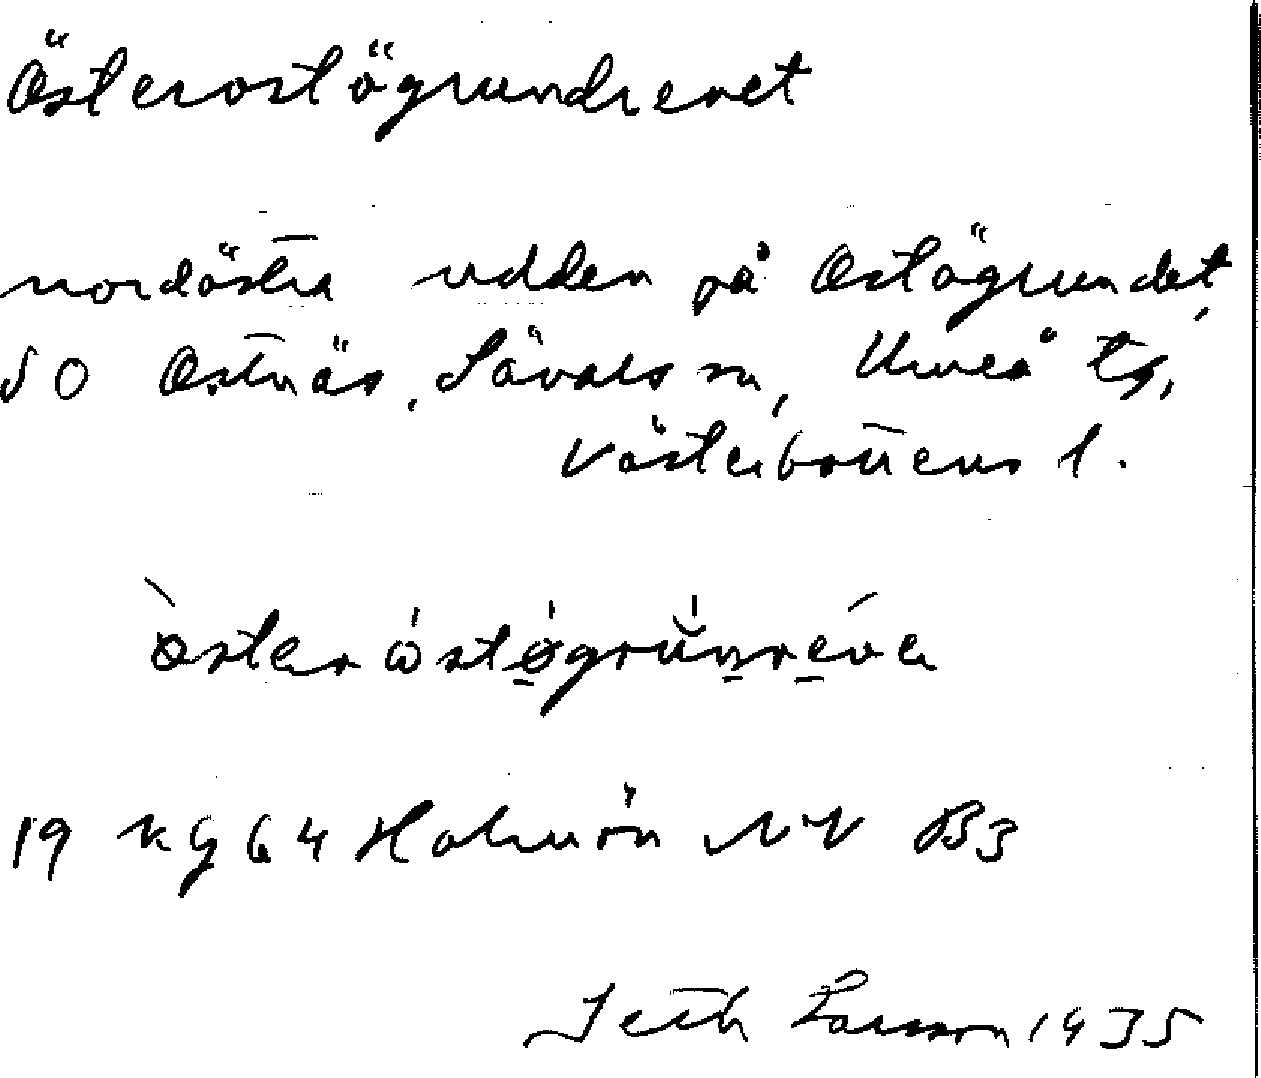 Österostögrundrevet
nordöstra udden på Ostögrundet,
SO Ostnäs, Sävars sn, Umeå tg,
Västerbottens l.
òster óstøgrŭnréva
19 kg 64 Holmön NV B3
Seth Larsson 1935